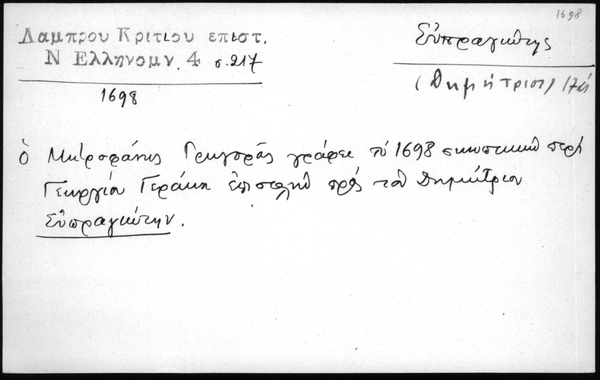 1698
Λαμπρου Κριτιου επιστ.
Ν Ελληνομν. 4 σ.217
1698
Εὐπραγιώτης
(Δημήτριος)
ὁ Μητροφάνης Γρηγορᾶς γράφει τῷ 1698 σκωπτικὴν περὶ
Γεωργίου Γεράκη ἐπιστολὴν πρὸς τὸν Δημήτριον
Εὐπραγιώτην.